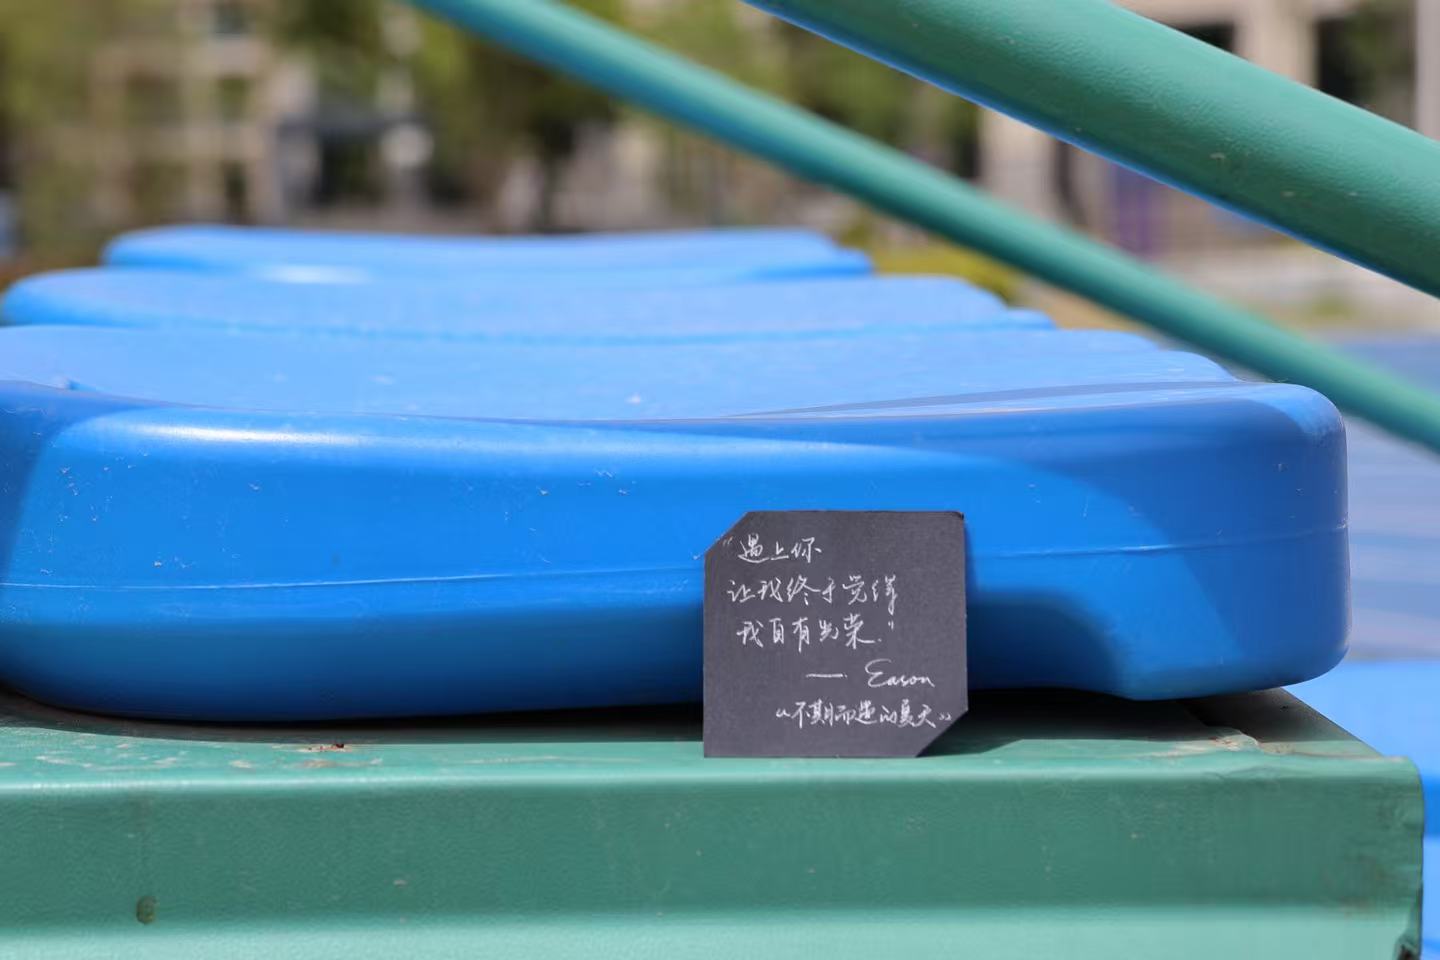 “遇上你
让我终于觉得
我自有光荣.”
—— Eason
“不期而遇的夏天”